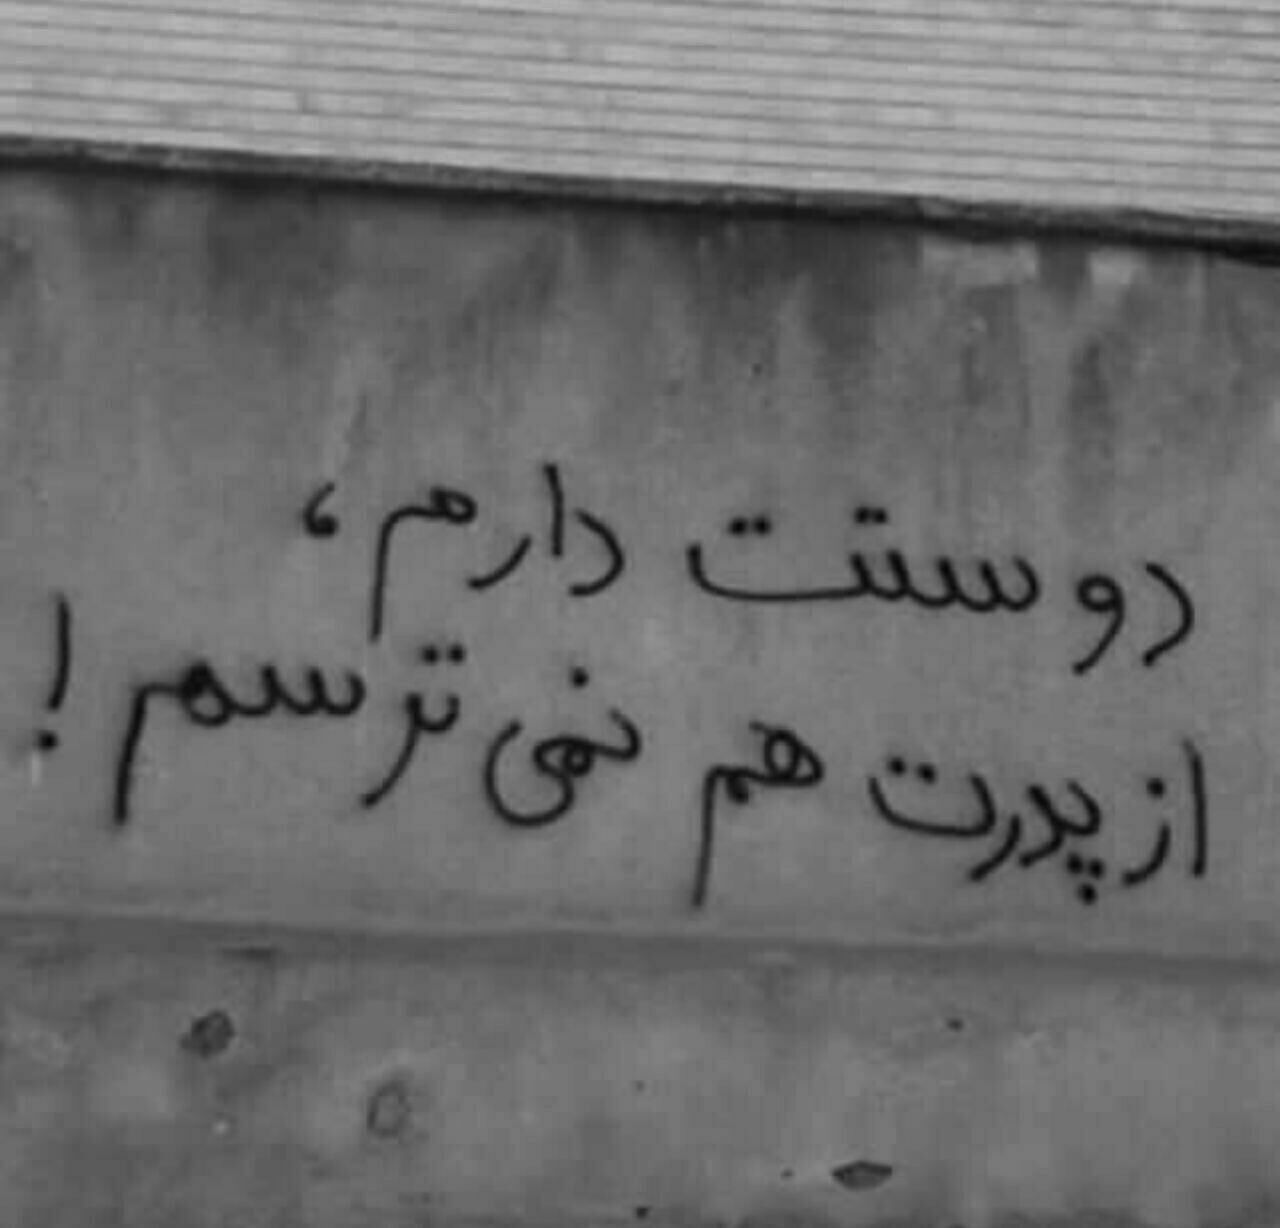 دوستت دارم،
از پدرت هم نمی ترسم!